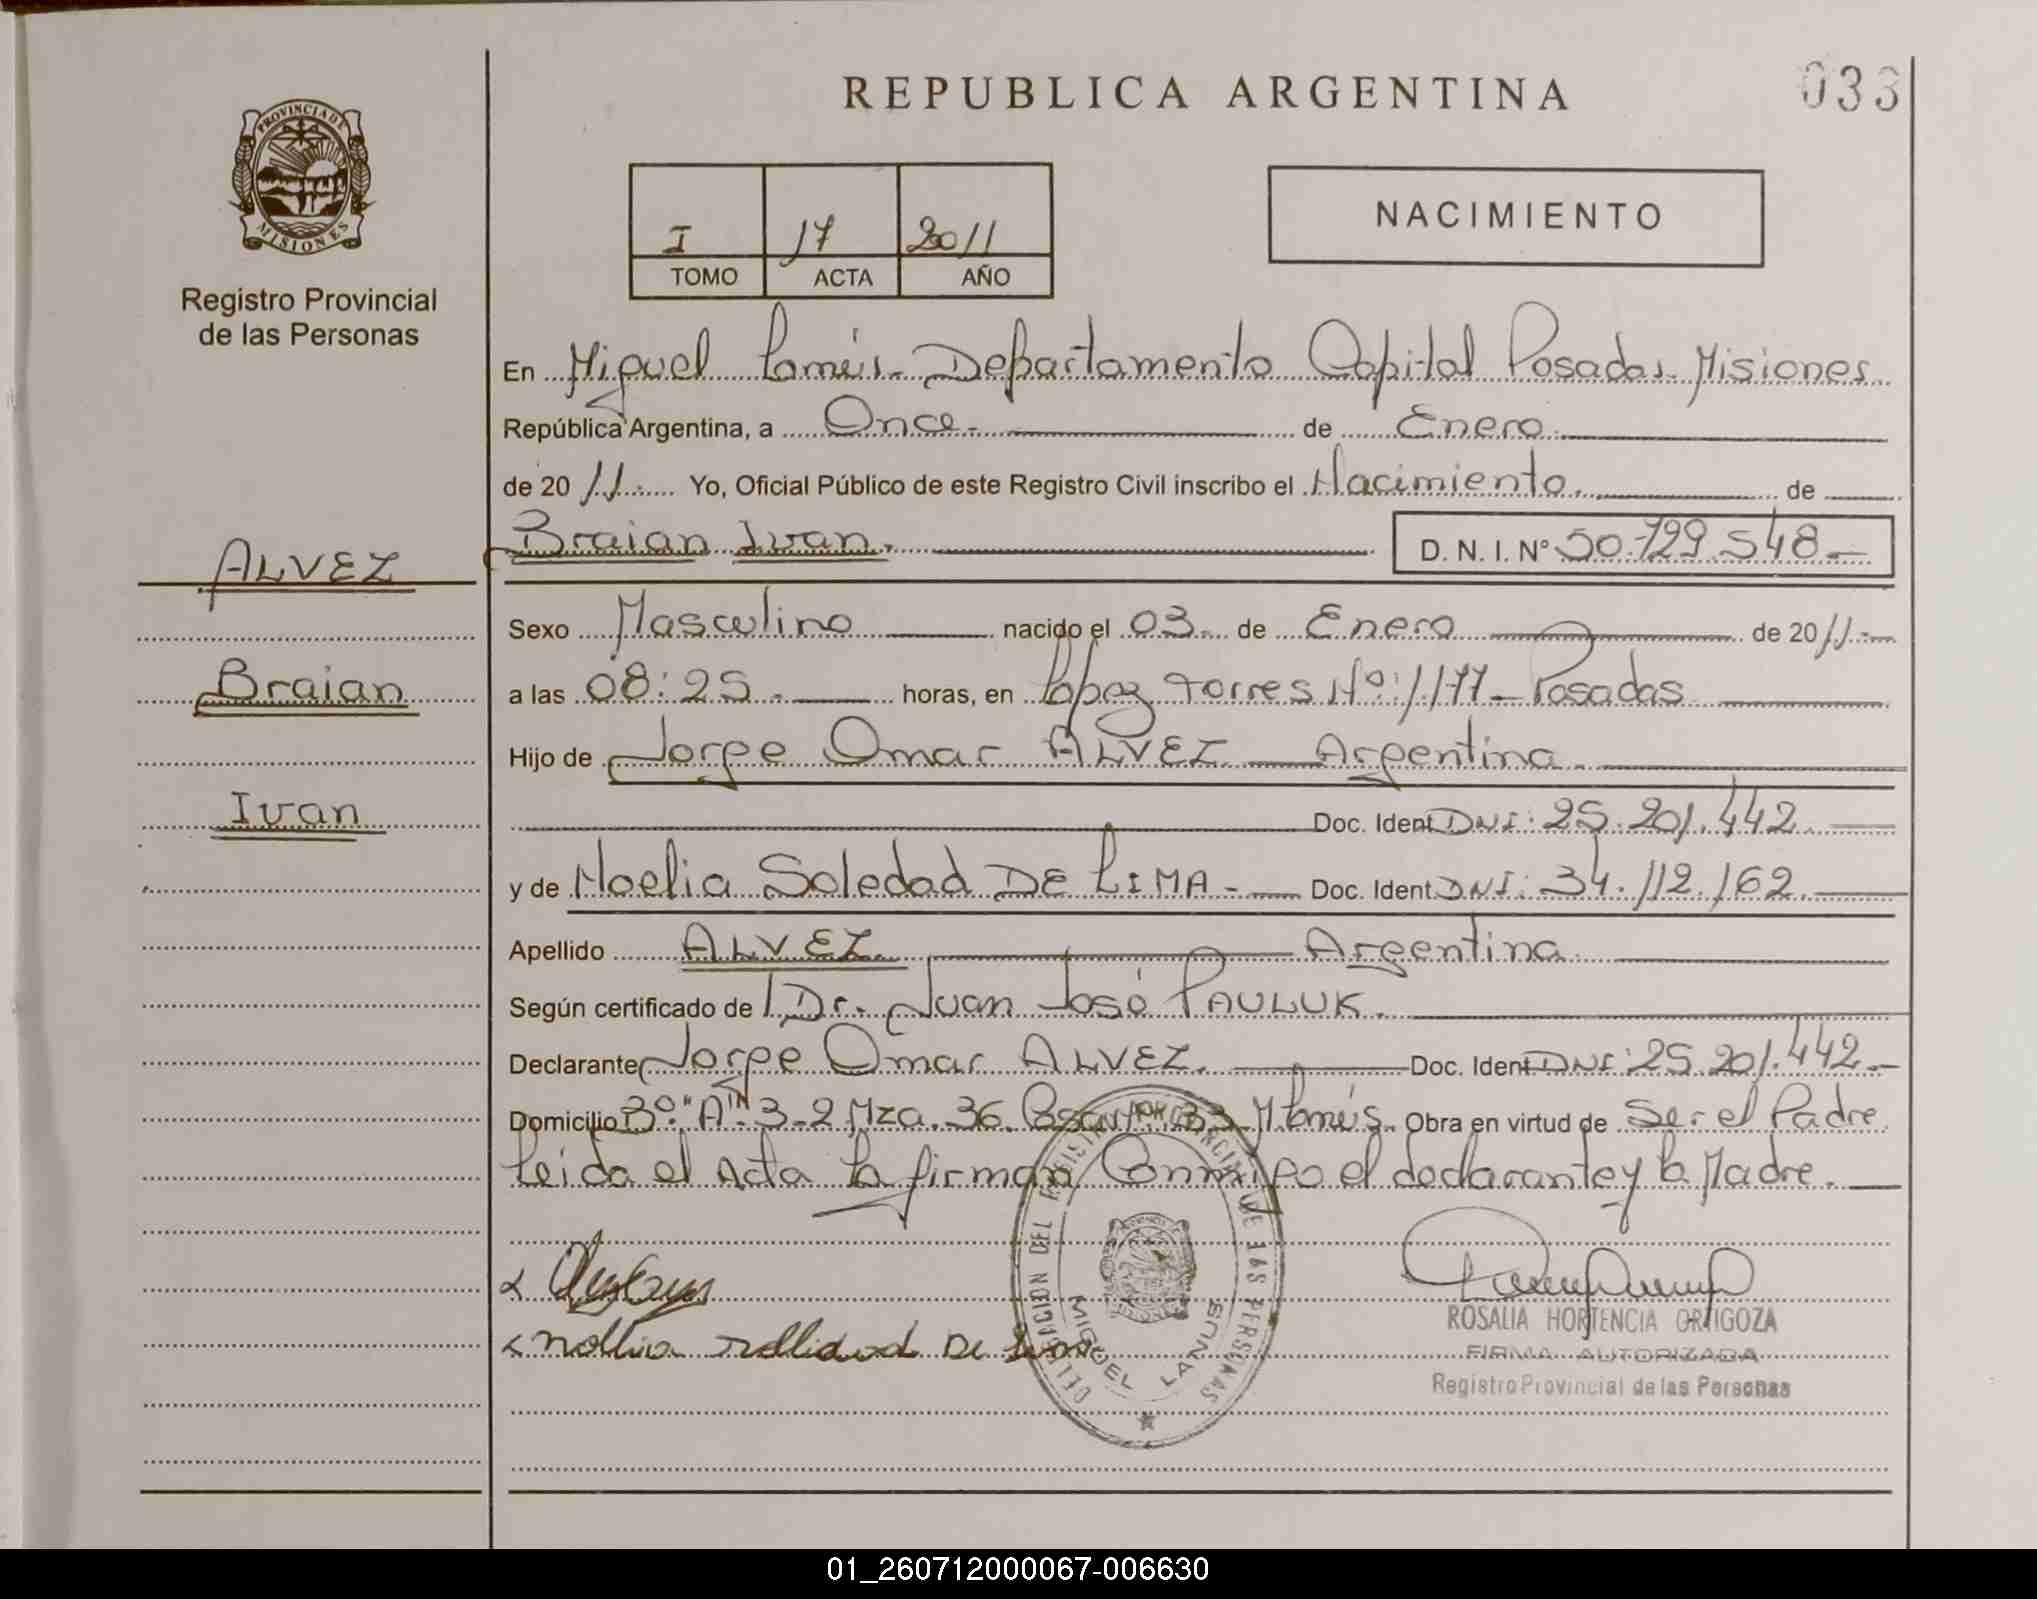 REPUBLICA ARGENTINA
033
PROVINCIA DE
MISIONES
Registro Provincial
de las Personas
I 17 2011
TOMO ACTA AÑO
NACIMIENTO
En Miguel Lanús - Departamento Capital Posadas Misiones
República Argentina, a Once.- de Enero.
de 2011.- Yo, Oficial Público de este Registro Civil inscribo el Nacimiento. de
ALVEZ
Braian
Ivan
Braian Ivan. D. N. I. Nº 50.729.548-
Sexo Masculino nacido el 03 de Enero de 2011.-
a las 08:25.- horas, en López Torres Nº: 1177 - Posadas
Hijo de Jorge Omar ALVEZ Argentina.
Doc. Ident DNI: 25.201.442.
y de Noelia Soledad DE LIMA - Doc. Ident DNI: 34.112.162.
Apellido ALVEZ. Argentina.
Según certificado de Dr. Juan José PAULUK.
Declarante Jorge Omar ALVEZ. Doc. Ident DNI: 25.201.442-
Domicilio 3º "A" 3-2 Mza. 36 33 M Lanús. Obra en virtud de Ser el Padre
Leida el Acta la firman Conmigo el declarante y la Madre.
DELEGACION DEL REGISTRO PROVINCIAL DE LAS PERSONAS
MIGUEL LANUS
ROSALIA HORTENCIA ORTIGOZA
FIRMA AUTORIZADA
Registro Provincial de las Personas
01_260712000067-006630